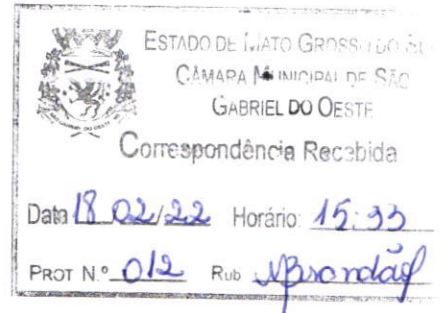 ESTADO DE MATO GROSSO DO SUL
CÂMARA MUNICIPAL DE SÃO
GABRIEL DO OESTE
Correspondência Recebida
Data 18 02/22 Horário: 15:33
PROT N.º 012 Rub